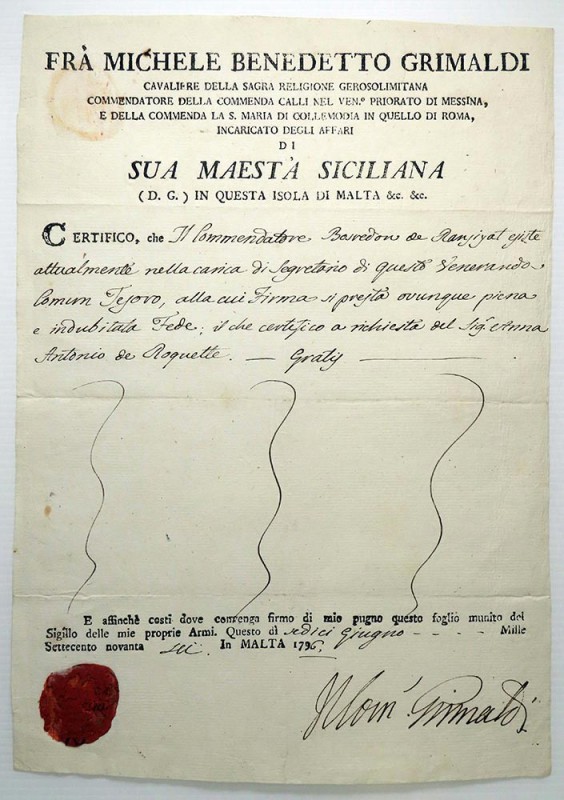 FRÀ MICHELE BENEDETTO GRIMALDI
CAVALIERE DELLA SAGRA RELIGIONE GEROSOLIMITANA
COMMENDATORE DELLA COMMENDA CALLI NEL VEN.º PRIORATO DI MESSINA,
E DELLA COMMENDA LA S. MARIA DI COLLEMODIA IN QUELLO DI ROMA,
INCARICATO DEGLI AFFARI
DI
SUA MAESTÀ SICILIANA
( D. G. ) IN QUESTA ISOLA DI MALTA &c. &c.
CERTIFICO, che Il Commendatore Bosredon de Ransijat esiste
attualmente nella carica di Segretario di questo Venerando
Comun Tesoro, alla cui Firma si presta ovunque piena
e indubitata Fede; il che certifico a richiesta del Sig.r Anna
Antonio de Roquette. — Gratis —
E affinchè costi dove convenga firmo di mio pugno questo foglio munito del
Sigillo delle mie proprie Armi. Questo dì sedici Giugno - - - - Mille
Settecento novanta sei. In MALTA 1796.
Il Com.r Grimaldi